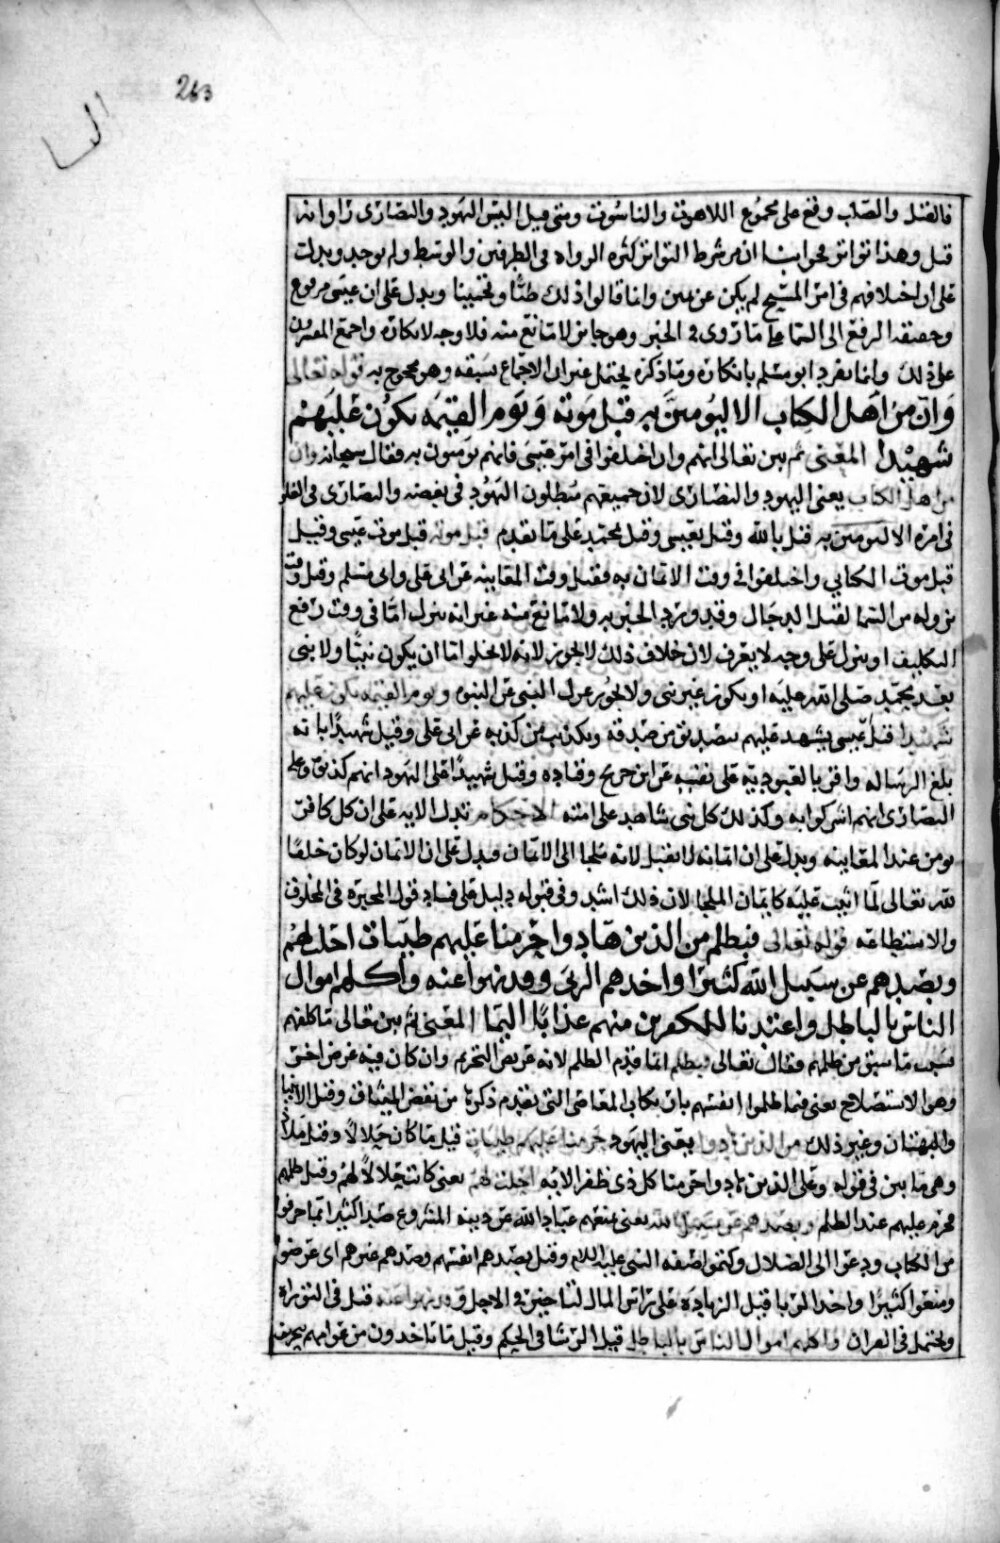 263
فالقتل والصلب وقع على مجموع اللاهوت والناسوت ومتى قيل اليس اليهود والنصارى رأوا انه
قتل وهذا تواتر فجوابنا ان من شرط التواتر كثرة الرواه في الطرفين والوسط ولم يوجد ويدل
على ان اختلافهم في امر المسيح لم يكن عن يقين وانما قالوا ذلك ظنًا وتخمينا ويدل على ان عيسى مرفوع
وحقيقه الرفع الى السما على ما روي في الخبر وهو جائز لا مانع منه فلا وجه لانكاره واجمع المفسرون
على ذلك وانما تفرد ابو مسلم بانكاره وما ذكره يحتمل غير ان الاجماع سبقه وهو محجوج به قوله تعالى
وان من اهل الكتاب الا ليومنن به قبل موته ويوم القيمه يكون عليهم
شهيدا المعنى ثم بين تعالى انهم وان اختلفوا في امر عيسى فانهم يومنون به فقال سبحانه وان
من اهل الكتاب يعنى اليهود والنصارى لان جميعهم مبطلون اليهود في بغضه والنصارى في الغلو
في امره الا ليومنن به قيل بالله وقيل بعيسى وقيل بمحمد على ما تقدم قبل موته قبل موت عيسى وقيل
قبل موت الكتابي واختلفوا في وقت الايمان به فقيل وقت المعاينه عن ابي علي وابي مسلم وقيل وقت
نزوله من السما لقتل الدجال وقد ورد الخبر به ولا مانع منه غير انه ينزل اما في وقت رفع
التكليف او ينزل على وجه لا يعرف لان خلاف ذلك لا يجوز لانه لا يخلوا اما ان يكون نبيًا ولا نبي
بعد محمد صلى الله عليه او يكون غير نبي ولا يجوز عزل النبي عن النبوه ويوم القيمه يكون عليهم
شهيدا قيل عيسى يشهد عليهم بتصديق من صدقه وتكذيب من كذبه عن ابي علي وقيل شهيدًا بانه
بلغ الرساله واقر بالعبوديه على نفسه عن ابن جريج وقتاده وقيل شهيدًا على اليهود انهم كذبوه وعلى
النصارى انهم اشركوا به وكذلك كل نبي شاهد على امته الاحكام تدل الايه على ان كل كافر
يومن عند المعاينه ويدل على ان ايمانه لا يقبل لانه ملجا الى الايمان فيدل على ان الايمان لو كان خلقًا
لله تعالى لما اثيب عليه كايمان الملجا لان ذلك اشد وفي قبوله دليل على فساد قول المجبره في المخلوق
والاستطاعه قوله تعالى فبظلم من الذين هادوا حرمنا عليهم طيبات احلت لهم
وبصدهم عن سبيل الله كثيرا واخذهم الربى وقد نهوا عنه واكلهم اموال
الناس بالباطل واعتدنا للكفرين منهم عذابًا اليما المعنى ثم بين تعالى ما كلفهم
بسبب ما سبق من ظلمهم فقال تعالى فبظلم انما قدم الظلم لانه غرض التحريم وان كان فيه غرض اخر
وهو الاستصلاح يعنى فبما ظلموا انفسهم بارتكاب المعاصي التي تقدم ذكرها من نقض الميثاق وقتل الانبيا
والبهتان وغير ذلك من الذين هادوا يعنى اليهود حرمنا عليهم طيبات قيل ما كان حلالًا وقيل ملاذًا
وهي ما بين في قوله وعلى الذين هادوا حرمنا كل ذي ظفر الايه احلت لهم يعنى كانت حلالًا لهم وقبل ظلمهم
فحرم عليهم عند الظلم وبصدهم عن سبيل الله يعنى بمنعهم عباد الله عن دينه المشروع صدًا كثيرًا بما حرفوا
من الكتاب ودعوا الى الضلال وكتموا صفه النبي عليه السلام وقيل بصدهم انفسهم وصدهم غيرهم اي عرضوا
ومنعوا كثيرًا واخذ الربا قيل الزياده على راس المال لتاخير في الاجل وقد نهوا عنه قيل في التوراه
ويحتمل في القران واكلهم اموال الناس بالباطل قيل الرشا في الحكم وقيل ما ياخذون من عوامهم بتحريف